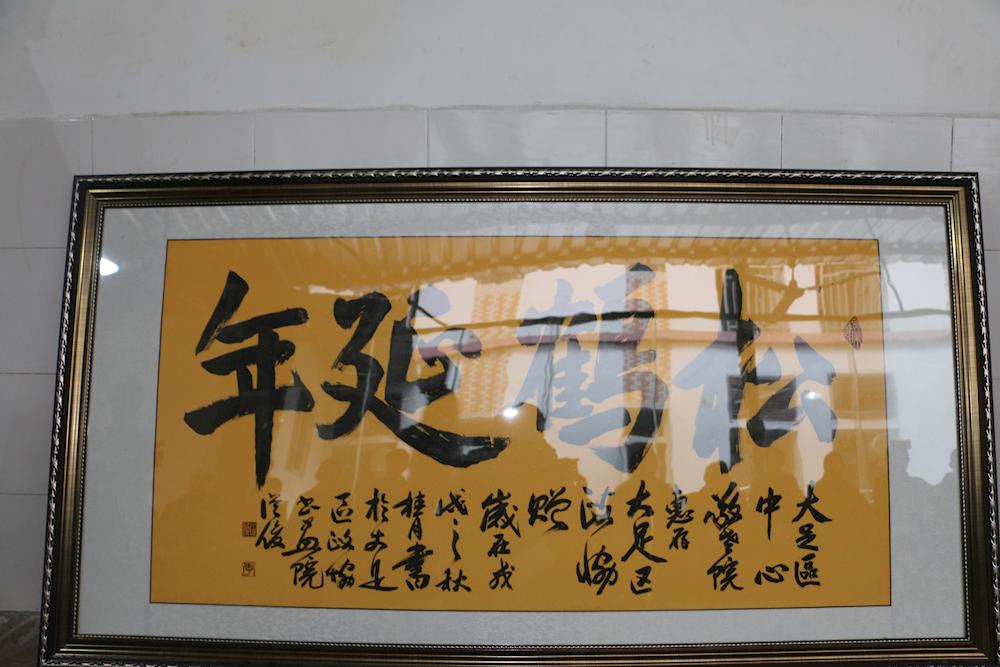 松鹤延年
大足區
中心
敬老院
惠存
大足区
政協
贈
歲在戊
戌之秋
桂月書
於大足
區政協
书画院